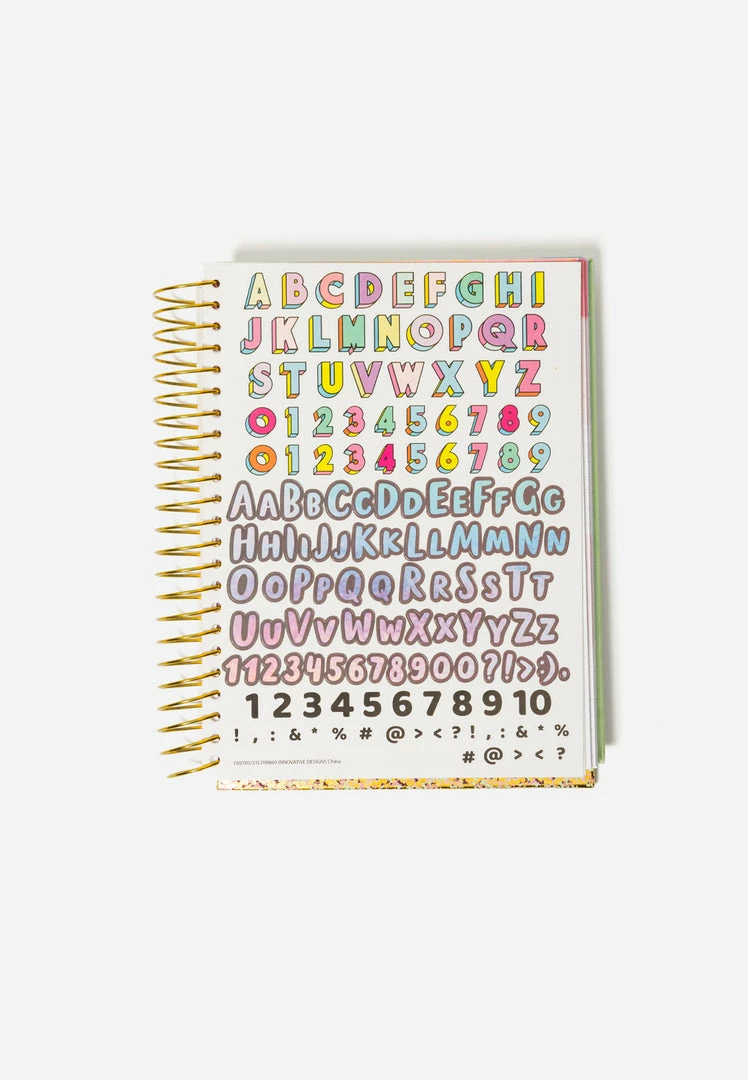 ABCDEFGHI
JKLMNOPQR
STUVWXYZ
0123456789
0123456789
AABBCCDDEEFFGG
HHIIJJKKLLMMNN
OOPPQQRRSSTT
UUVVWWXXYYZZ
112345678900?!>:).
1 2 3 4 5 6 7 8 9 10
! , : & * % # @ > < ? ! , : & * %
# @ > < ?
INNOVATIVE DESIGNS China